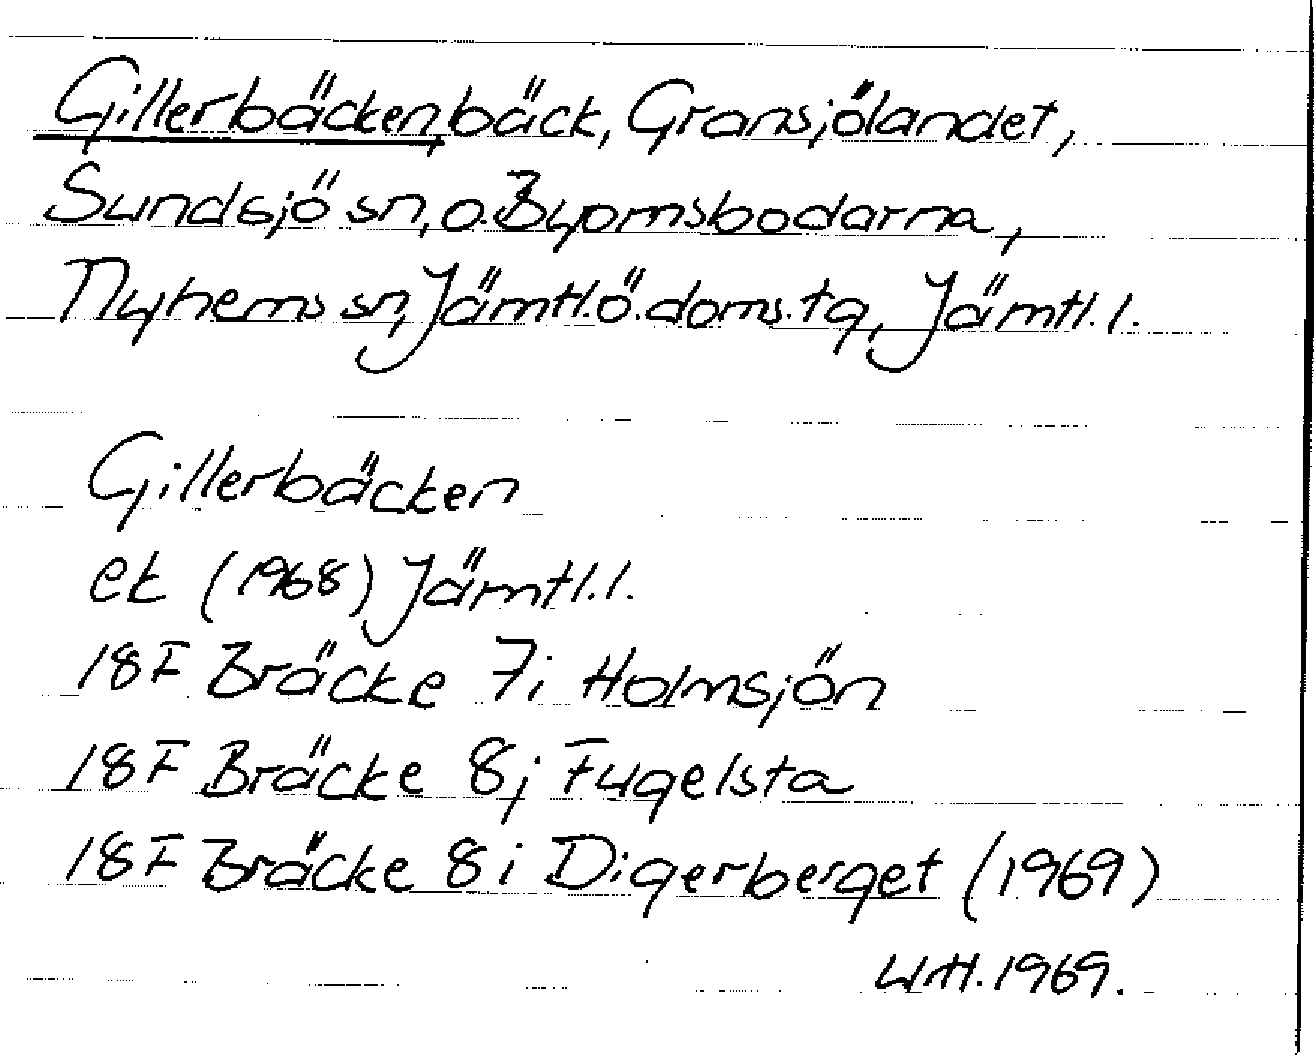 Gillerbäcken, bäck, Gransjölandet,
Sundsjö sn, o. Byomsbodarna,
Nyhems sn, Jämtl. ö. doms. tg, Jämtl. l.
Gillerbäcken
ek (1968) Jämtl. l.
18F Bräcke 7i Holmsjön
18F Bräcke 8j Fugelsta
18F Bräcke 8i Digerberget (1969)
1969.